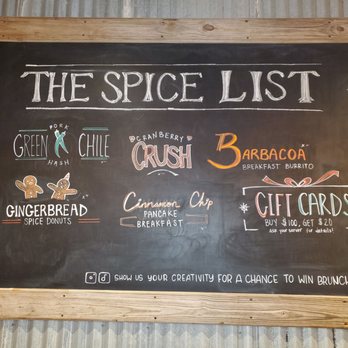 THE SPICE LIST
PORK
GREEN CHILE
HASH
CRANBERRY
CRUSH
BARBACOA
BREAKFAST BURRITO
GINGERBREAD
SPICE DONUTS
Cinnamon Chip
PANCAKE
BREAKFAST
GIFT CARDS
BUY $100, GET $20
ask your server for details!
SHOW US YOUR CREATIVITY FOR A CHANCE TO WIN BRUNCH